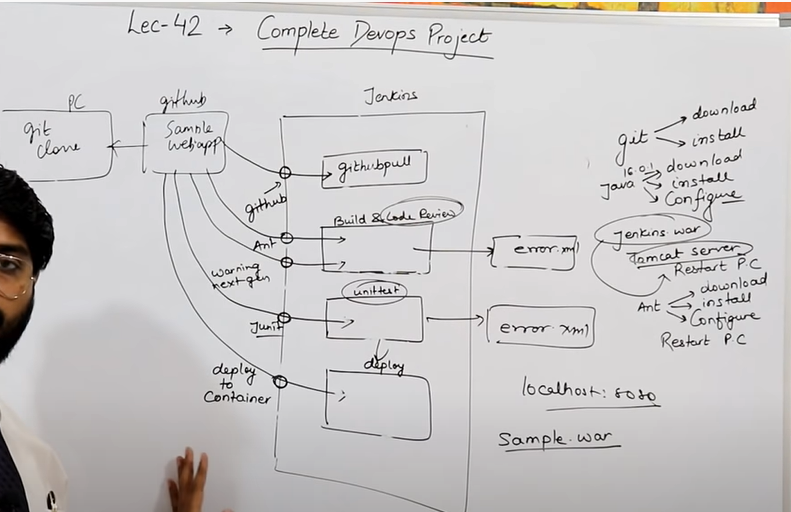 Lec-42 → Complete Devops Project
PC
git
clone
github
Sample
webapp
Jenkins
github
githubpull
Build & Code Review
Ant
warning
next-gen
error.xml
unittest
Junit
error.xml
deploy
deploy
to
Container
git
download
install
16.0.1
Java
download
install
Configure
Jenkins.war
Tomcat server
Restart P.C
Ant
download
install
Configure
Restart P.C
localhost: 8080
Sample.war